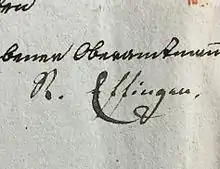 bener Oberamtmann
R. Effinger.